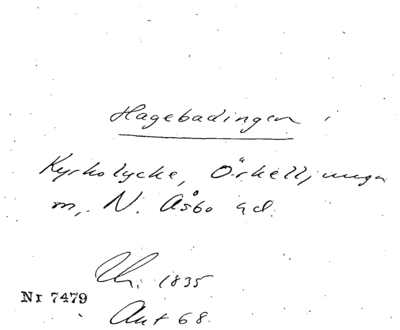 Hagebadingen i
Kyrkolycke, Örkelljunga
m, N. Åsbo hd.
Chr. 1835
Nr 7479
Ant 68.